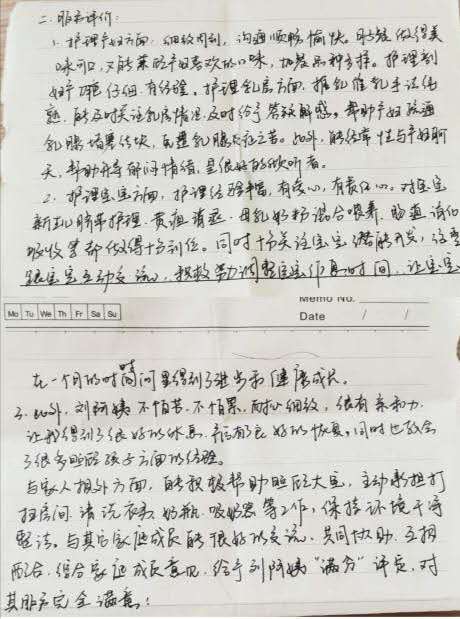 二、服务评价：
1、护理产妇方面，细致周到，沟通顺畅愉快。月子餐做得美
味可口，又能兼顾产妇喜欢的口味，品种多样。护理剖
妇产 有经验。护理乳房方面，推乳催乳手法纯
熟，能及时关注乳房情况，及时给予答疑解惑。帮助产妇疏通
乳腺堵塞结块，免遭乳腺炎症之苦。此外，能经常性与产妇聊
天，帮助开导郁闷情绪，是很好的倾听者。
2、护理宝宝方面，护理经验丰富，有爱心，有责任心。对宝宝
新生儿脐带护理、黄疸清退、母乳奶粉混合喂养、
吸收等都做得十分到位。同时十分关注宝宝潜能开发，
跟宝宝互动交流，积极努力调整宝宝作息时间，让宝宝
Memo No.
Mo Tu We Th Fr Sa Su
Date / /
在一个月的时间里得到了进步和健康成长。
3、此外，刘阿姨不怕苦、不怕累，耐心细致，很有亲和力，
让我得到了很好的休息，有良好的恢复，同时也教会
了很多照顾孩子方面的经验。
与家人相处方面，能积极帮助照顾大宝，主动承担打
扫房间、清洗衣物、奶瓶、吸奶器等工作，保持环境干净
整洁。与其它家庭成员能很好的交流，共同协助、互相
配合，综合家庭成员意见，给予刘阿姨“满分”评定，对
其服务完全满意！